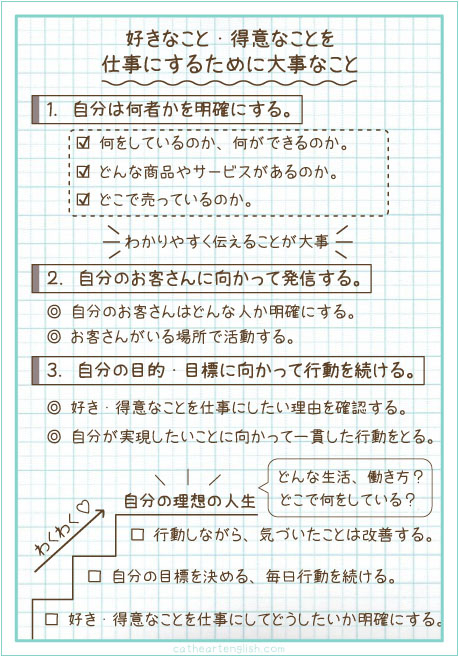 好きなこと・得意なことを
仕事にするために大事なこと
1. 自分は何者かを明確にする。
何をしているのか、何ができるのか。
どんな商品やサービスがあるのか。
どこで売っているのか。
わかりやすく伝えることが大事
2. 自分のお客さんに向かって発信する。
◎ 自分のお客さんはどんな人か明確にする。
◎ お客さんがいる場所で活動する。
3. 自分の目的・目標に向かって行動を続ける。
◎ 好き・得意なことを仕事にしたい理由を確認する。
◎ 自分が実現したいことに向かって一貫した行動をとる。
どんな生活、働き方？
どこで何をしている？
自分の理想の人生
わくわく♡
行動しながら、気づいたことは改善する。
自分の目標を決める、毎日行動を続ける。
好き・得意なことを仕事にしてどうしたいか明確にする。
catheartenglish.com